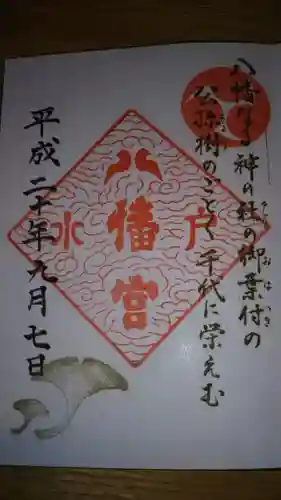 八幡なる神の社の御葉付の
おはつき
公孫樹のごとく千代に栄えむ
八幡宮
水戸
平成二十年九月七日